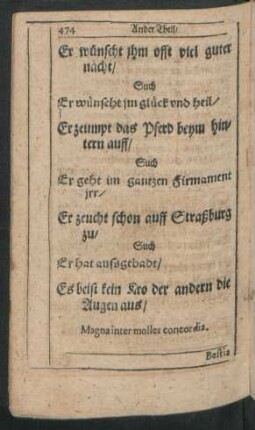 474 Ander Theil/
Er wünscht jhm offt viel guter
nacht/
Such
Er wünscht jm glück vnd heil/
Er zeumpt das Pferd beym hin-
tern auff/
Such
Er geht im gantzen Firmament
jrr/
Er zeucht schon auff Straßburg
zu/
Such
Er hat außgebadt/
Es beist kein Kro der andern die
Augen aus/
Magna inter molles concordia.
Bestia